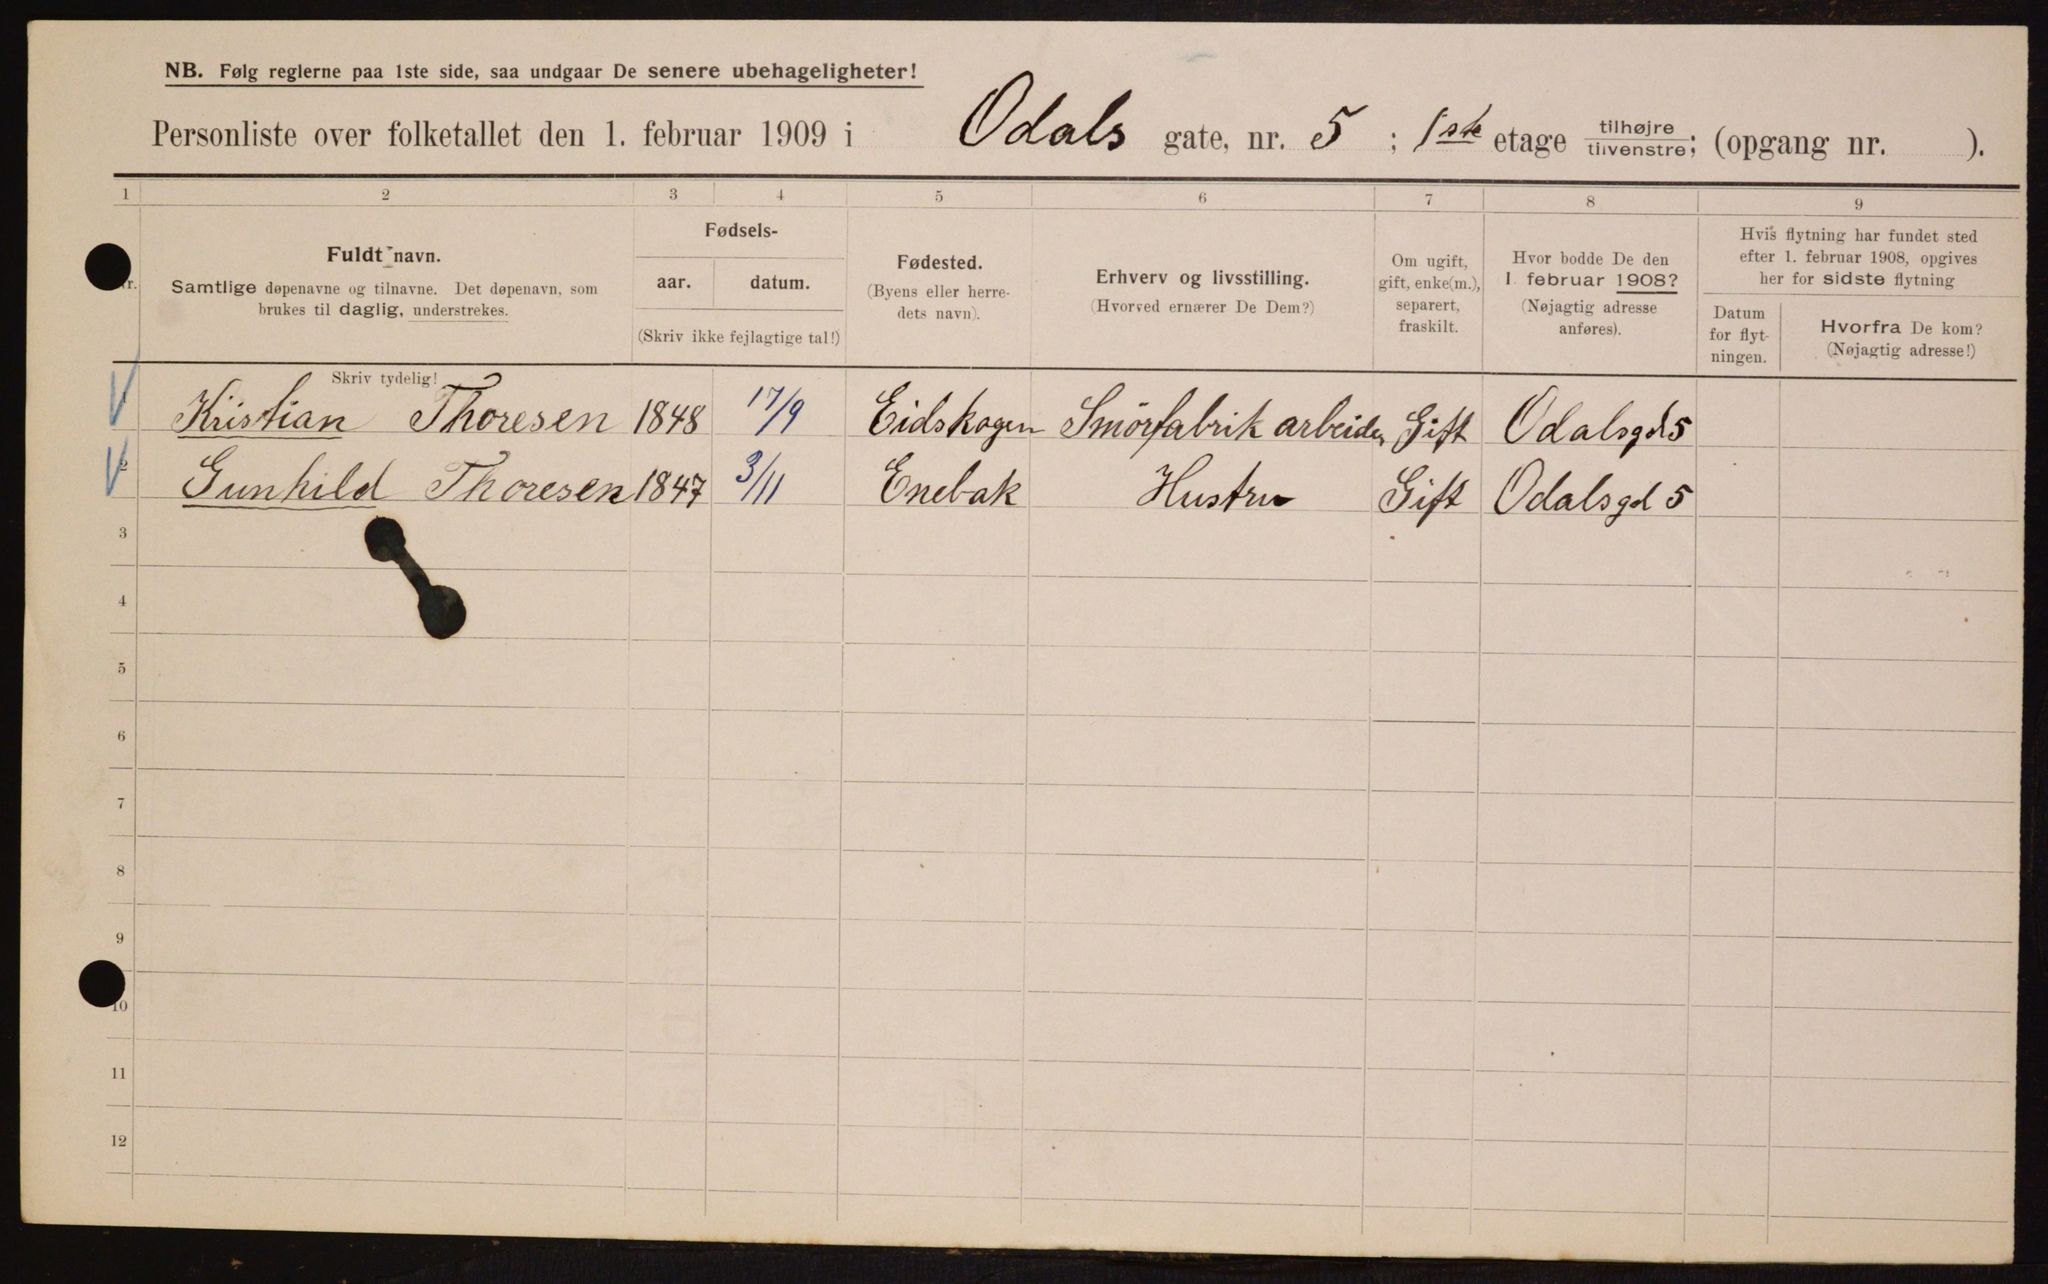 NB. Følg reglerne paa 1ste side, saa undgaar De senere ubehageligheter!
Personliste over folketallet den 1. februar 1909 i Odals gate, nr. 5 ; 1ste etage tilhøjre tilvenstre; (opgang nr. ).
1 2 3 4 5 6 7 8 9
Fuldt navn.
Samtlige døpenavne og tilnavne. Det døpenavn, som
brukes til daglig, understrekes.
Fødsels-
aar. datum.
(Skriv ikke fejlagtige tal!)
Fødested.
(Byens eller herre-
dets navn).
Erhverv og livsstilling.
(Hvorved ernærer De Dem?)
Om ugift,
gift, enke(m.),
separert,
fraskilt.
Hvor bodde De den
1. februar 1908?
(Nøjagtig adresse
anføres).
Hvis flytning har fundet sted
efter 1. februar 1908, opgives
her for sidste flytning
Datum
for flyt-
ningen.
Hvorfra De kom?
(Nøjagtig adresse!)
Skriv tydelig!
Kristian Thoresen 1848 17/9 Eidskogen Smörfabrik arbeider Gift Odalsgd 5
2 Gunhild Thoresen 1847 3/11 Enebak Hustru Gift Odalsgd 5
3
4
5
6
7
8
9
10
11
12